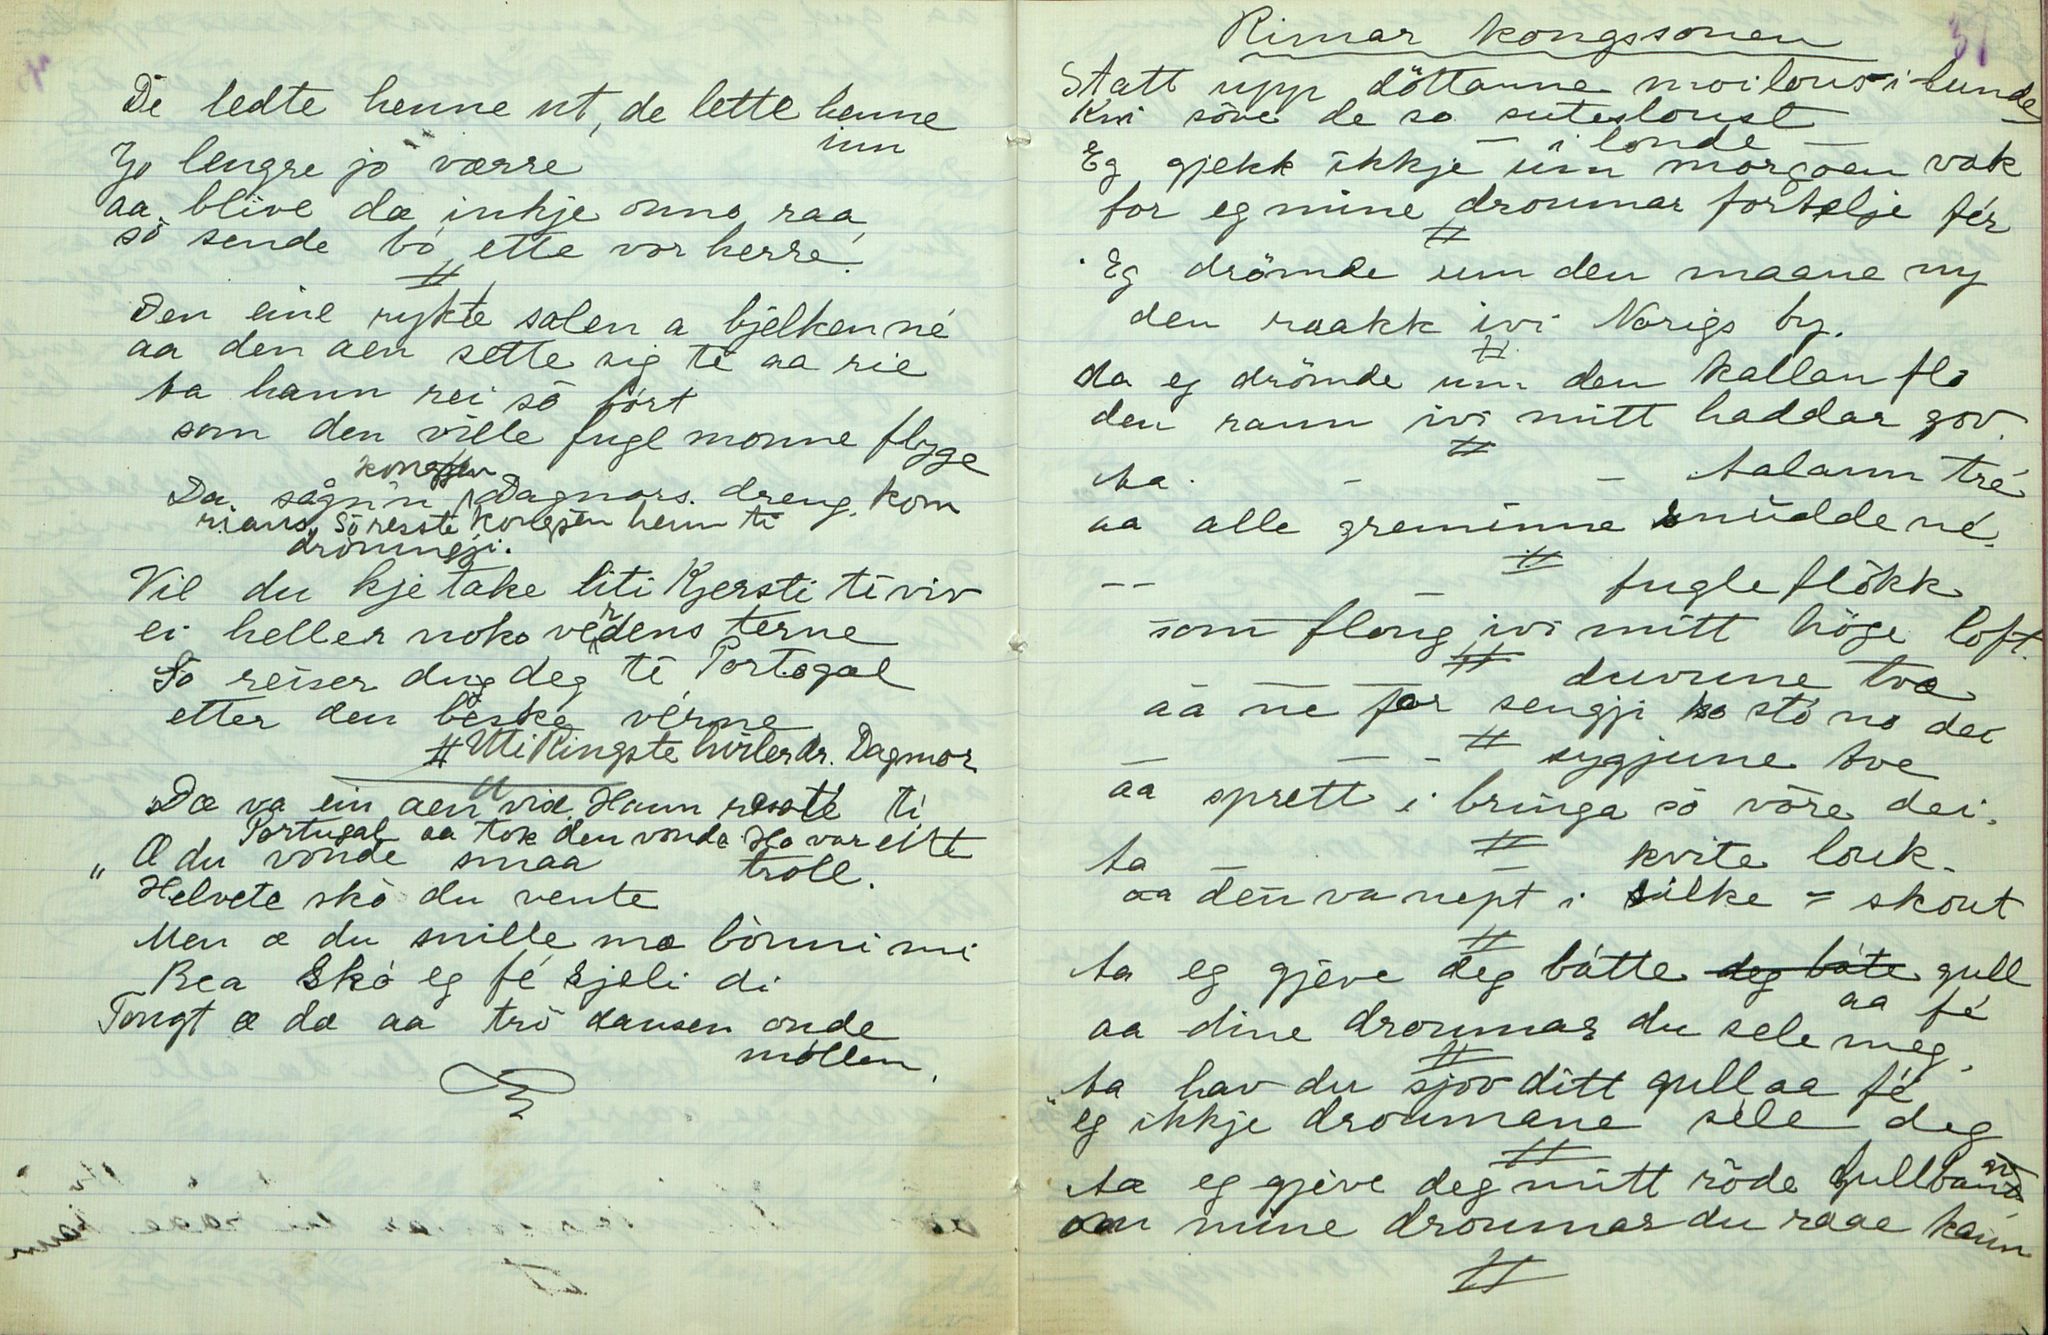 De ledte henne ut, de lette henne
inn
Jo lengre jo værre
aa blive dæ inkje onno raa
so sende bo ette vor herre.
#
Den eine rykte salen a bjelken né
aa den aen sette sig te aa rie
Aa hann rei so bort
som den ville fugl monne flyge
kongjen
Da sågnin Dagmars dreng. kom
rians, So resste kongjen heim ti
dronningji.
Vil du kje take liti Kjersti ti viv
ei heller noko verdens terne
So reiser du deg ti Portogal
etter den beske vérne
# Uti Ringste hviler dr. Dagmor
"Dæ va ein aen vise. Hann resste ti
Portugal aa tok den vonde Ho var eitt
troll.
" Æ du vonde smaa
Helvete sko du vente
Men æ du snille mæ bonni mi
Bea sko eg fé sjeli di
Tongt æ dæ aa tro dansen onde
mollen.
31
Rimar kongssonen
Statt upp döttanne moi lous i lunde
Kvi söve de so suteloust
— i londe —
Eg gjekk ikkje um morgoen vak
for eg mine droumar fortelje fér
#
Eg drömde um den maane ny
den raakk ivi Norigs by.
#
da eg drömde um den kallan flo
den rann ivi mitt haddar gov.
#
Aa. — — Aalann tré
aa alle greninne snudde né.
#
-- — fugleflökk
som floug ivi mitt höge loft.
#
— — — duvune två
aa ne for sengji so sto no dei
#
— — - sygjune tve
aa sprett i bringa so vöre dei.
#
Aa — — kvite louk.
aa den va nept i silke = skout
#
Aa eg gjeve deg båtte deg båte gull
aa fé
aa dine droumar du sele meg.
#
Aa hav du sjov ditt gull aa fé
eg ikkje droumane sele deg
#
Aa eg gjeve deg mitt röde Gullband
om mine droumar du raae kann
#